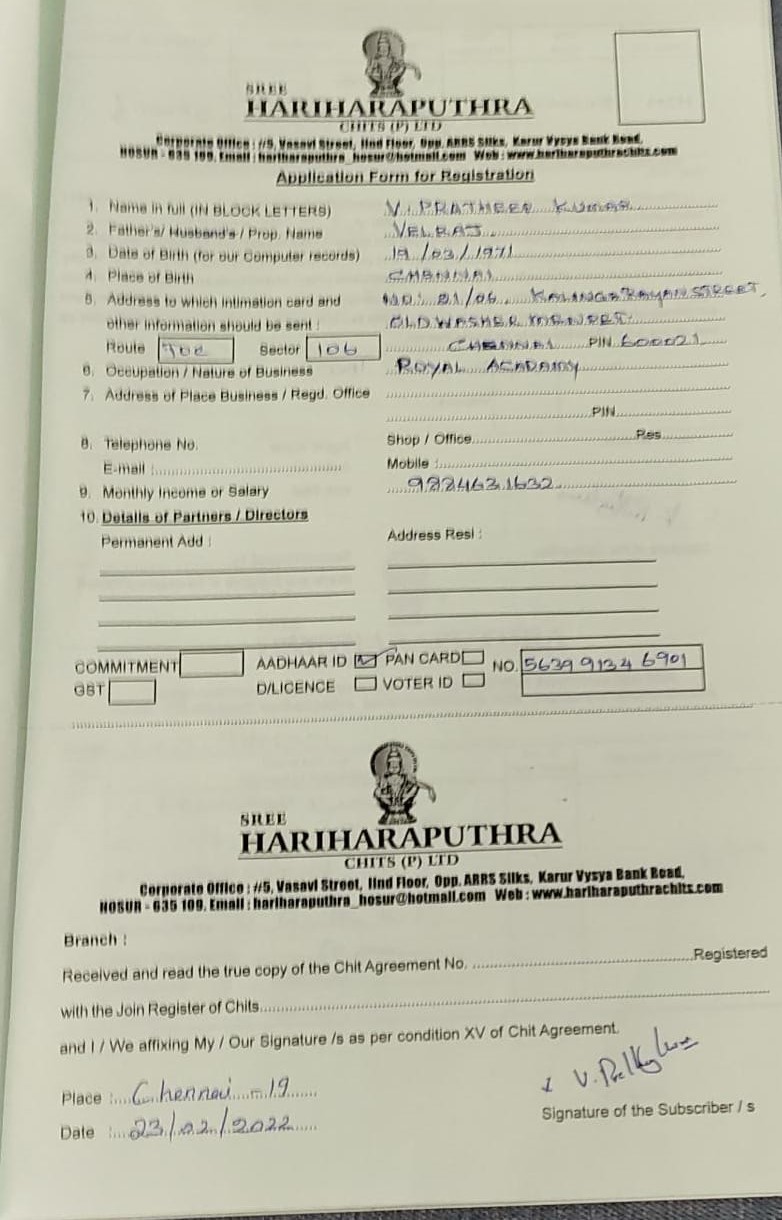 SREE
HARIHARAPUTHRA
CHITS (P) LTD
Corporate Office : #5, Vasavi Street, IInd Floor, Opp. ARRS Silks, Karur Vysya Bank Road,
HOSUR - 635 109. Email : hariharaputhra_hosur@hotmail.com Web : www.hariharaputhrachits.com
Application Form for Registration
1. Name in full (IN BLOCK LETTERS) V. PRATHEEP KUMAR
2. Father's/ Husband's / Prop. Name VELRAJ
3. Date of Birth (for our Computer records) 19/03/1971
4. Place of Birth CHENNAI
5. Address to which intimation card and NO: 21/06, KALINGARAYAN STREET,
other information should be sent : OLD WASHER MENPET.
Route 702 Sector 106 CHENNAI PIN 600021
6. Occupation / Nature of Business ROYAL ACADAMY
7. Address of Place Business / Regd. Office
PIN
8. Telephone No. Shop / Office Res
E-mail : Mobile :
9. Monthly Income or Salary 9884631632
10. Details of Partners / Directors
Permanent Add : Address Resi :
COMMITMENT AADHAAR ID PAN CARD NO. 5639 9134 6901
GST D/LICENCE VOTER ID
SREE
HARIHARAPUTHRA
CHITS (P) LTD
Corporate Office : #5, Vasavi Street, IInd Floor, Opp. ARRS Silks, Karur Vysya Bank Road,
HOSUR - 635 109. Email : hariharaputhra_hosur@hotmail.com Web : www.hariharaputhrachits.com
Branch :
Received and read the true copy of the Chit Agreement No. Registered
with the Join Register of Chits
and I / We affixing My / Our Signature /s as per condition XV of Chit Agreement.
Place : Chennai - 19
Date : 23/02/2022
Signature of the Subscriber / s